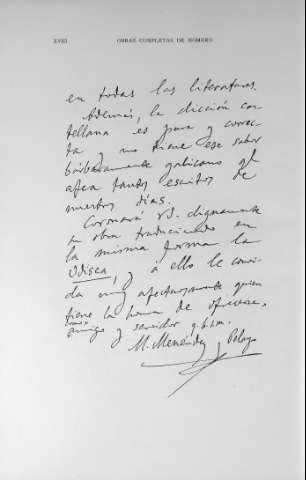 XVIII OBRAS COMPLETAS DE HOMERO
en todas las literaturas.
Además, la dicción cas
tellana es pura y correc
ta y no tiene ese sabor
bárbaramente galicano q.e
afea tantos escritos de
nuestros días.
Coronará vd. dignamente
su obra traduciendo en
la misma forma la
Odisea, y a ello le convi
da muy afectuosamente quien
tiene la honra de ofrecerse
como
amigo y servidor q.b.s.m.
M. Menéndez y Pelayo